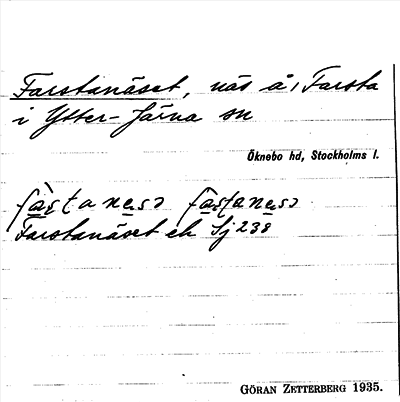 Farstanäset, näs å Farsta
i Ytter-Järna sn
Öknebo hd, Stockholms l.
Farstanäset ek Sj 238
GÖRAN ZETTERBERG 1935.